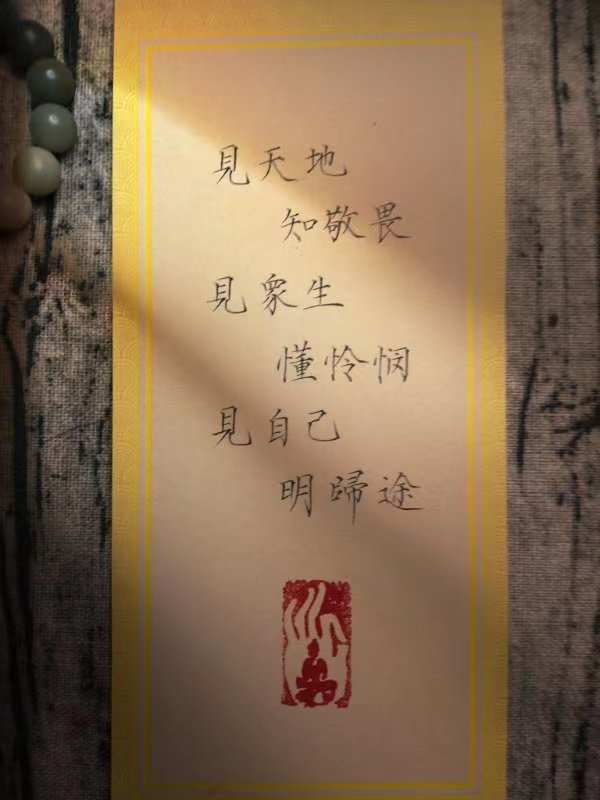 見天地
知敬畏
見衆生
懂怜悯
見自己
明歸途